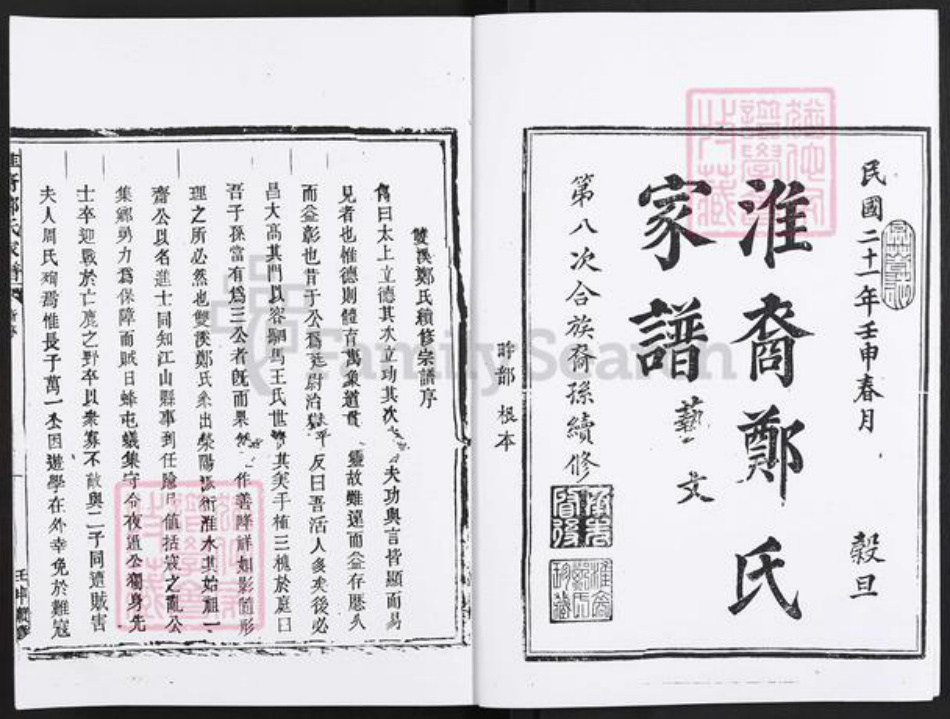 民國二十一年壬申春月 穀旦
淮裔鄭氏
家譜 藝文
第八次合族裔孫續修
盱郡 根本
雙溪鄭氏續修宗譜序
傳曰太上立德其次立功其次 夫功與言皆顯而易
見者也惟德則體育萬象道貫 靈故雖遠而益存歷久
而益彰也昔于公為廷尉治獄平反曰吾活人多矣後必
昌大高其門以容駟馬王氏世 其美手植三槐於庭曰
吾子孫當有為三公者既而果然 作善降祥如影隨形
理之所必然也雙溪鄭氏系出滎陽派衍淮水其始祖一
齋公以名進士同知江山縣事到任 值括寇之亂公
集鄉勇力為保障而賊日蜂屯蟻集守令夜遁公獨身先
士卒迎戰於亡鹿之野卒以衆寡不敵與二子同遭賊害
夫人周氏殉焉惟長子萬一公因遊學在外幸免於難寇
FamilySearch